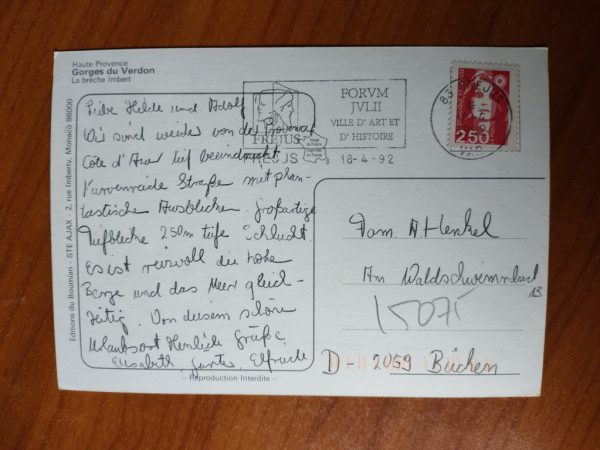 Haute Provence
Gorges du Verdon
La brèche Imbert
Editions du Boumian - STE AJAX - 2, rue Imberty, Monaco 98000
Liebe Helde und Adolf
Wir sind wieder von der Provence
Côte d'Azur tief beeindruckt
Kurvenreiche Straße mit phan-
tastische Ausblicken. Großartige
Tiefblicke 250m tiefe Schlucht.
Es ist reizvoll die hohe
Berge und das Meer gleich-
zeitig. Von diesem schöne
Urlaubsort Herzliche Grüße
Elisabeth, Günter, Elfriede
- Reproduction Interdite -
FREJUS
FORVM
JVLII
VILLE D'ART ET
D'HISTOIRE
FREJUS
18-4-92
83 FREJUS
2,50
Fam A. Henkel
Am Waldschwimmbad
13
15075
D - 2059 Büchen